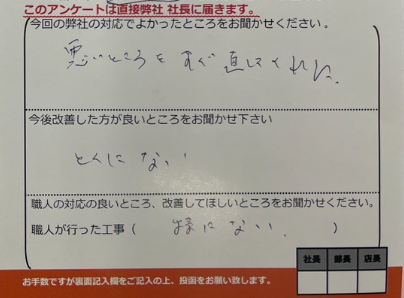 このアンケートは直接弊社 社長に届きます。
今回の弊社の対応でよかったところをお聞かせください。
悪いところをすぐ直してくれた。
今後改善した方が良いところをお聞かせ下さい
とくにない
職人の対応の良いところ、改善してほしいところをお聞かせください。
職人が行った工事( 特にない. )
社長 部長 店長
お手数ですが裏面記入欄をご記入の上、投函をお願い致します。